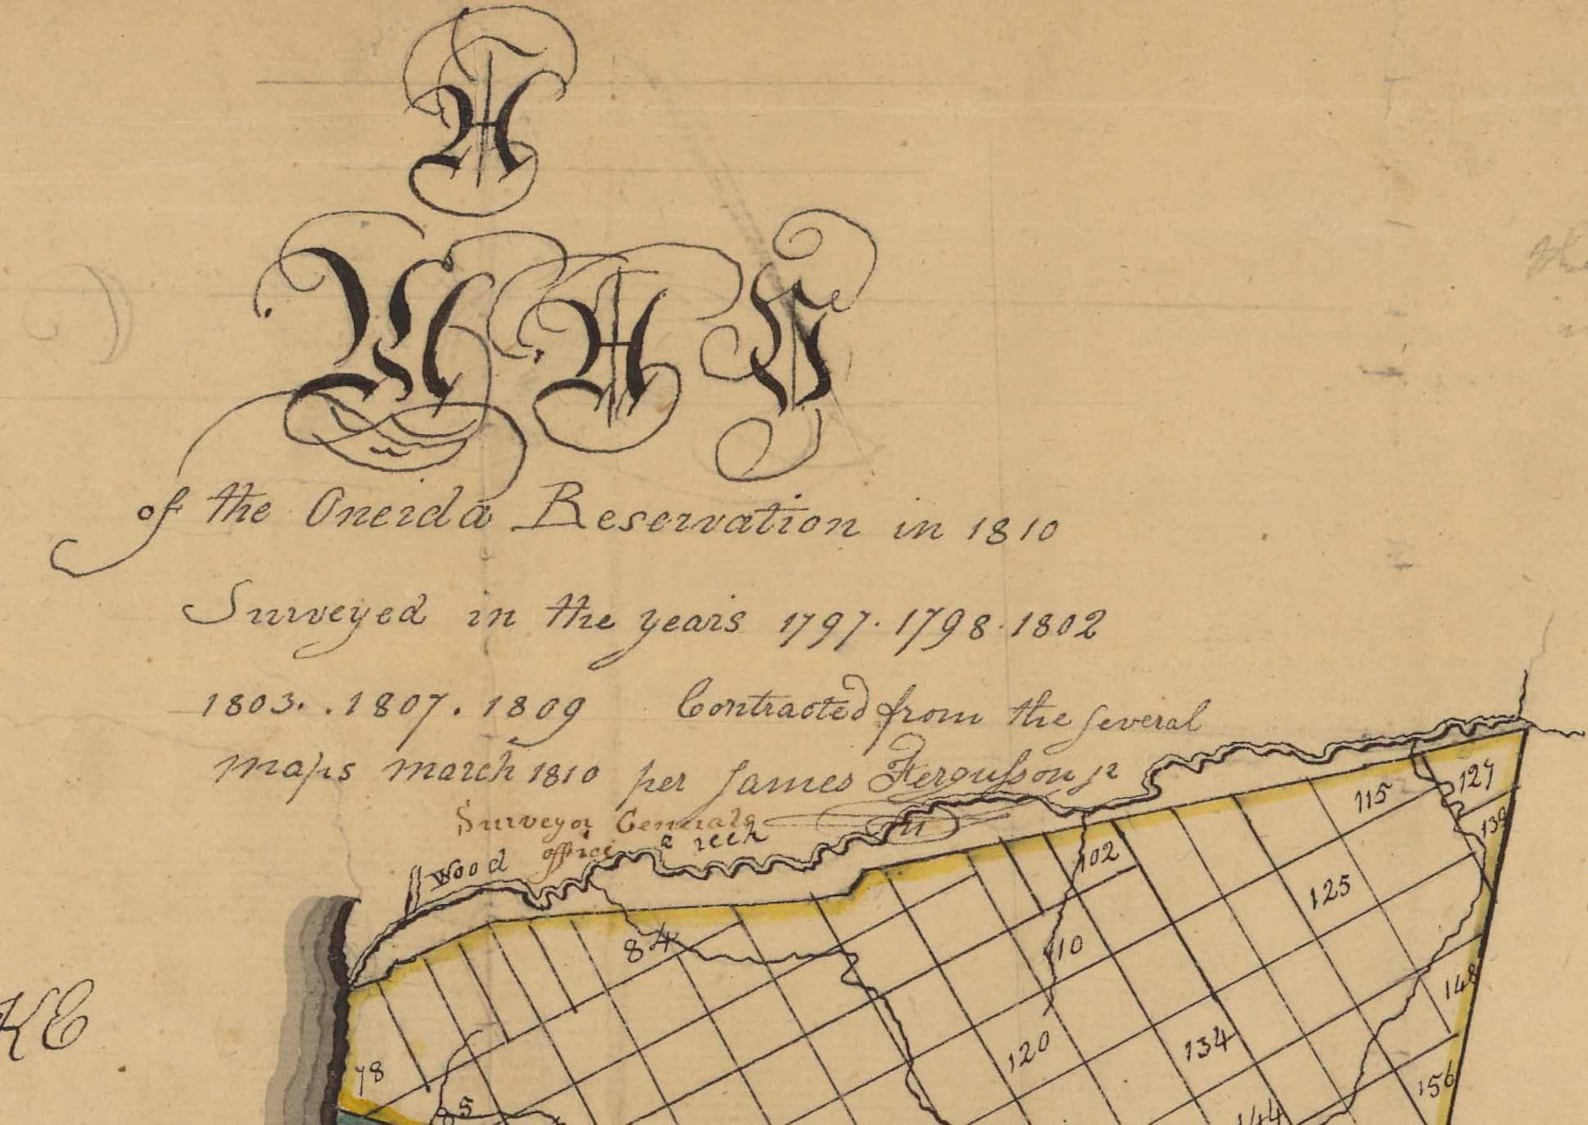 A
MAP
of the Oneida Reservation in 1810
Surveyed in the years 1797. 1798. 1802
1803. . 1807. 1809 Contracted from the several
maps march 1810 per James Fergusson jr
Surveyor Generals
office
Wood creek
127
115
139
102
125
84
110
148
120
134
KE
78
156
85
144